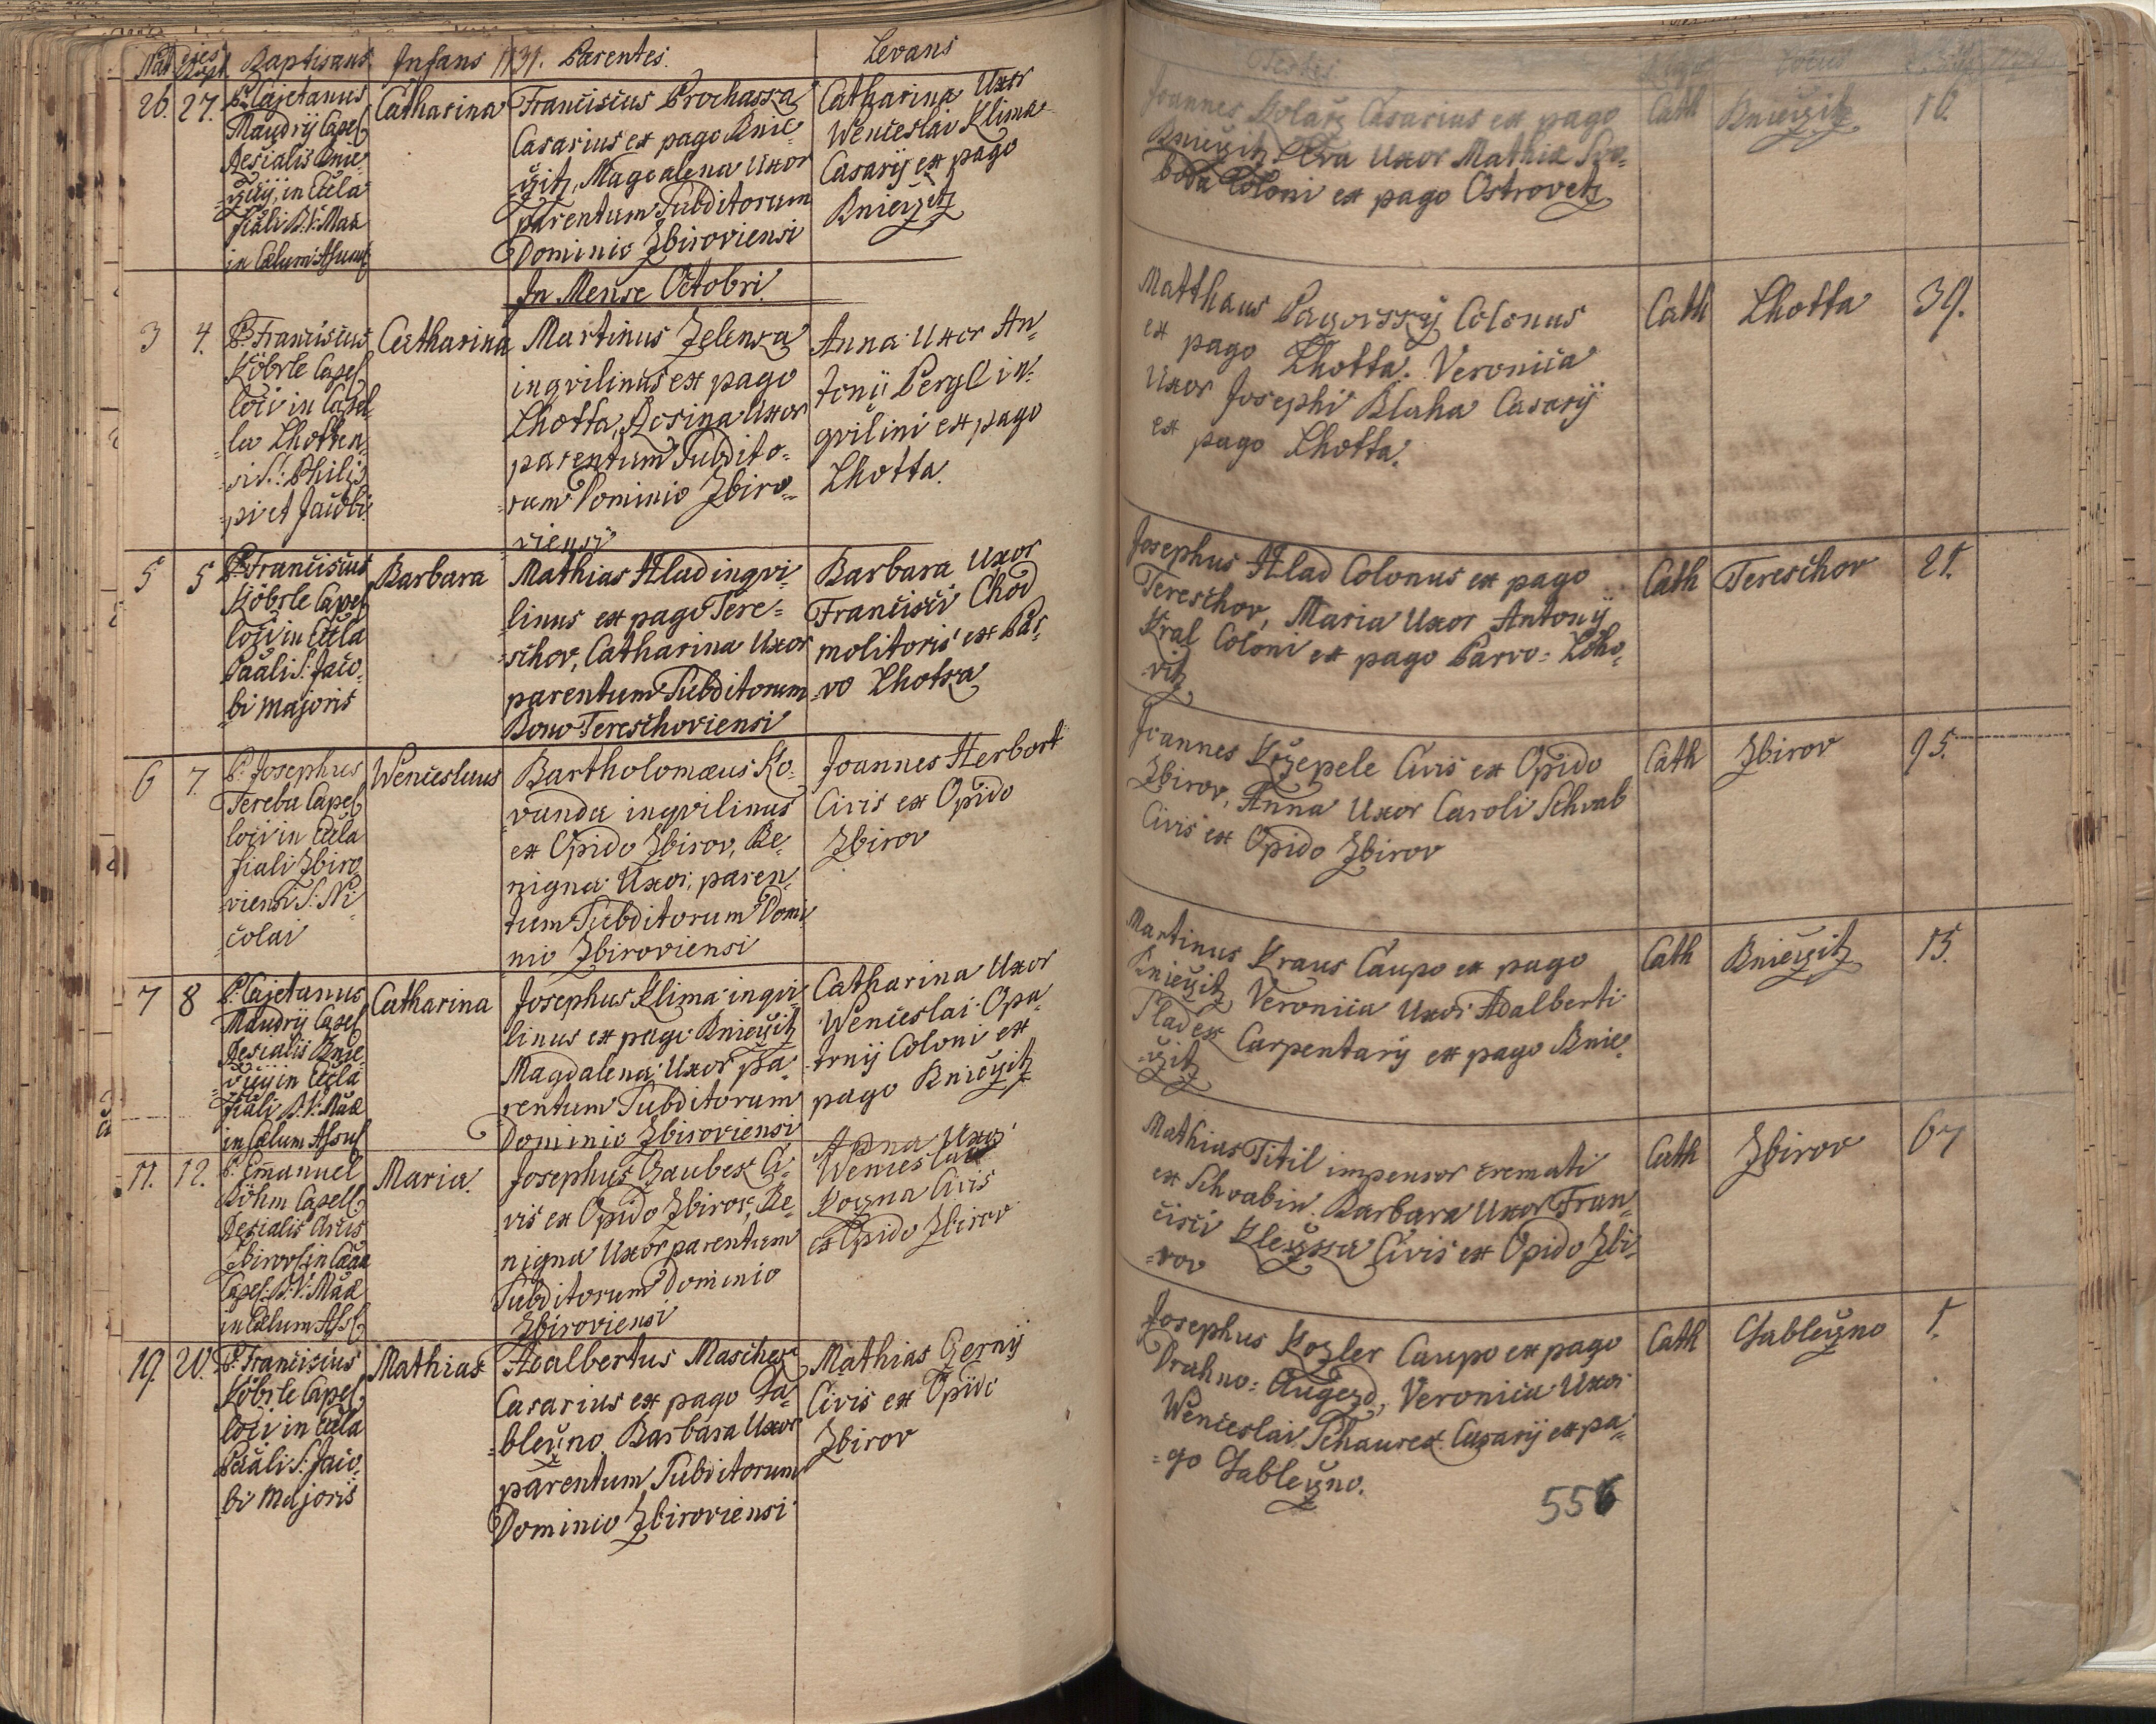 Nat dies Bapt. Baptisans Infans 1731. Parentes. Levans
26. 27. P. Cajetanus
Maudrÿ Capel
Desialis Knie-
=žiÿ, in Eccla
fiali B: V: Mad
in Cælum Assum
Catharina
Franciscus Prochaska
Casarius ex pago Knie=
žitz, Magdalena Uxor
parentum Subditorum
Dominio Zbiroviensi
Catharina Uxor
Wenceslai Klima
Casarÿ ex pago
Knieżitz
In Mense Octobri.
3 4. P. Franciscus
Köbrle Capel
loci in Capel
=la Lhotten
=si S.: Philip
=pi et Jacobi.
Catharina
Martinus Zelenka
inqvilinus ex pago
Lhotta, Rosina Uxor
parentum Subdito=
=rum Dominio Zbiro=
=viensi
Anna Uxor An=
tonii Pergl in=
qvilini ex pago
Lhotta.
5 5 P. Franciscus
Köbrle Capel
loci in Eccla
Paali S: Jaco=
bi Majoris
Barbara
Mathias Hlad inqvi=
linus ex pago Tere=
=schov, Catharina Uxor
parentum Subditorum
Bono Tereschoviensi
Barbara Uxor
Francisci Chod
molitoris ex Par=
=vo Lhotka
6 7. P. Josephus
Tereba Capel
loci in Eccla
fiali Zbiro
=viensi S: Ni
=colai
Wenceslaus
Bartholomæus Ko=
vanda inqvilinus
ex Opido Zbirov, Be=
nigna Uxor, paren=
tum Subditorum Domi
nio Zbiroviensi
Joannes Herbort
Civis ex Opido
Zbirov
7 8 P. Cajetanus
Maudrÿ Capel
Desialis Knie
=žiÿ in Eccla
fiali B: V: Mad
in Cælum Assu
Catharina
Josephus Klima inqvi
linus ex pago Knieżitz
Magdalena Uxor pa=
rentum Subditorum
Dominio Zbiroviensi
Catharina Uxor
Wenceslai Opa=
trnÿ Coloni ex
pago Knieżitz
11. 12. P. Emanuel
Böhm Capell:
Desialis Arcis
Zbirov in
Capel: B: V: Mad
in Cælum Ass
Maria.
Josephus Haubek Ci=
vis ex Opido Zbirov, Be=
nigna Uxor parentum
Subditorum Dominio
Zbiroviensi
Anna Uxor
Wenceslai
Kozna Civis
ex Opido Zbirov
19. 20. P. Franciscus
Köbrle Capel:
loci in Eccla
Paali S: Jaco=
bi Majoris
Mathias
Adalbertus Maschek
Casarius ex pago Ja=
=bleczno, Barbara Uxor
parentum Subditorum
Dominio Zbiroviensi
Mathias Czernÿ
Civis ex Opido
Zbirov
Testes Locus
Joannes Kolarz Casarius ex pago
Knieżitz, Eva Uxor Mathiæ Svo=
boda Coloni ex pago Ostrovetz
Cath Knieżitz 10.
Matthæus Pazourkÿ Colonus
ex pago Lhotta. Veronica
Uxor Josephi Blaha Casarÿ
ex pago Lhotta.
Cath Lhotta 39.
Josephus Hlad Colonus ex pago
Tereschov, Maria Uxor Antonÿ
Kral Coloni ex pago Parvo= Loho=
vitz
Cath Tereschov 21.
Joannes Krzepele Civis ex Opido
Zbirov, Anna Uxor Caroli Schvab
Civis ex Opido Zbirov
Cath Zbirov 95.
Martinus Kraus Caupo ex pago
Knieżitz Veronica Uxor Adalberti
Sladek Carpentarÿ ex pago Knie=
=žitz
Cath Knieżitz 15.
Mathias Titil impensor cremati
ex Schvabin. Barbara Uxor Fran=
cisci Kleczka Civis ex Opido Zbi=
=rov
Cath Zbirov 67
Josephus Kozler Caupo ex pago
Drahno= Augezd, Veronica Uxor
Wenceslai Schaurek Casarÿ ex pa=
=go Jableczno.
Cath Jableczno 1.
556